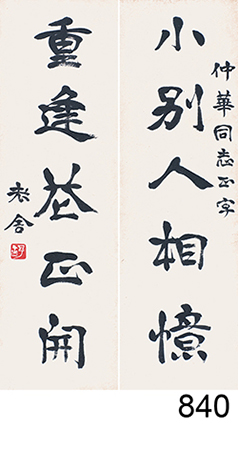 仲華同志正字
小别人相憶
重逢花正開
老舍
840